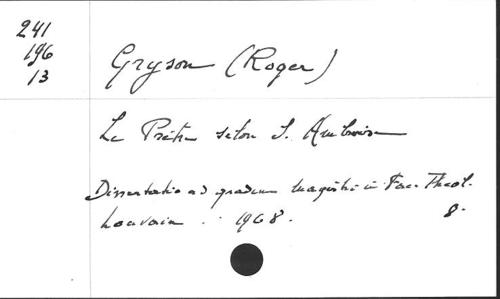 241
196
13
Gryson (Roger)
Le Prêtre selon S. Ambroise
Dissertatio ad gradum magistri in Fac. Theol.
Louvain . . 1968.
8.